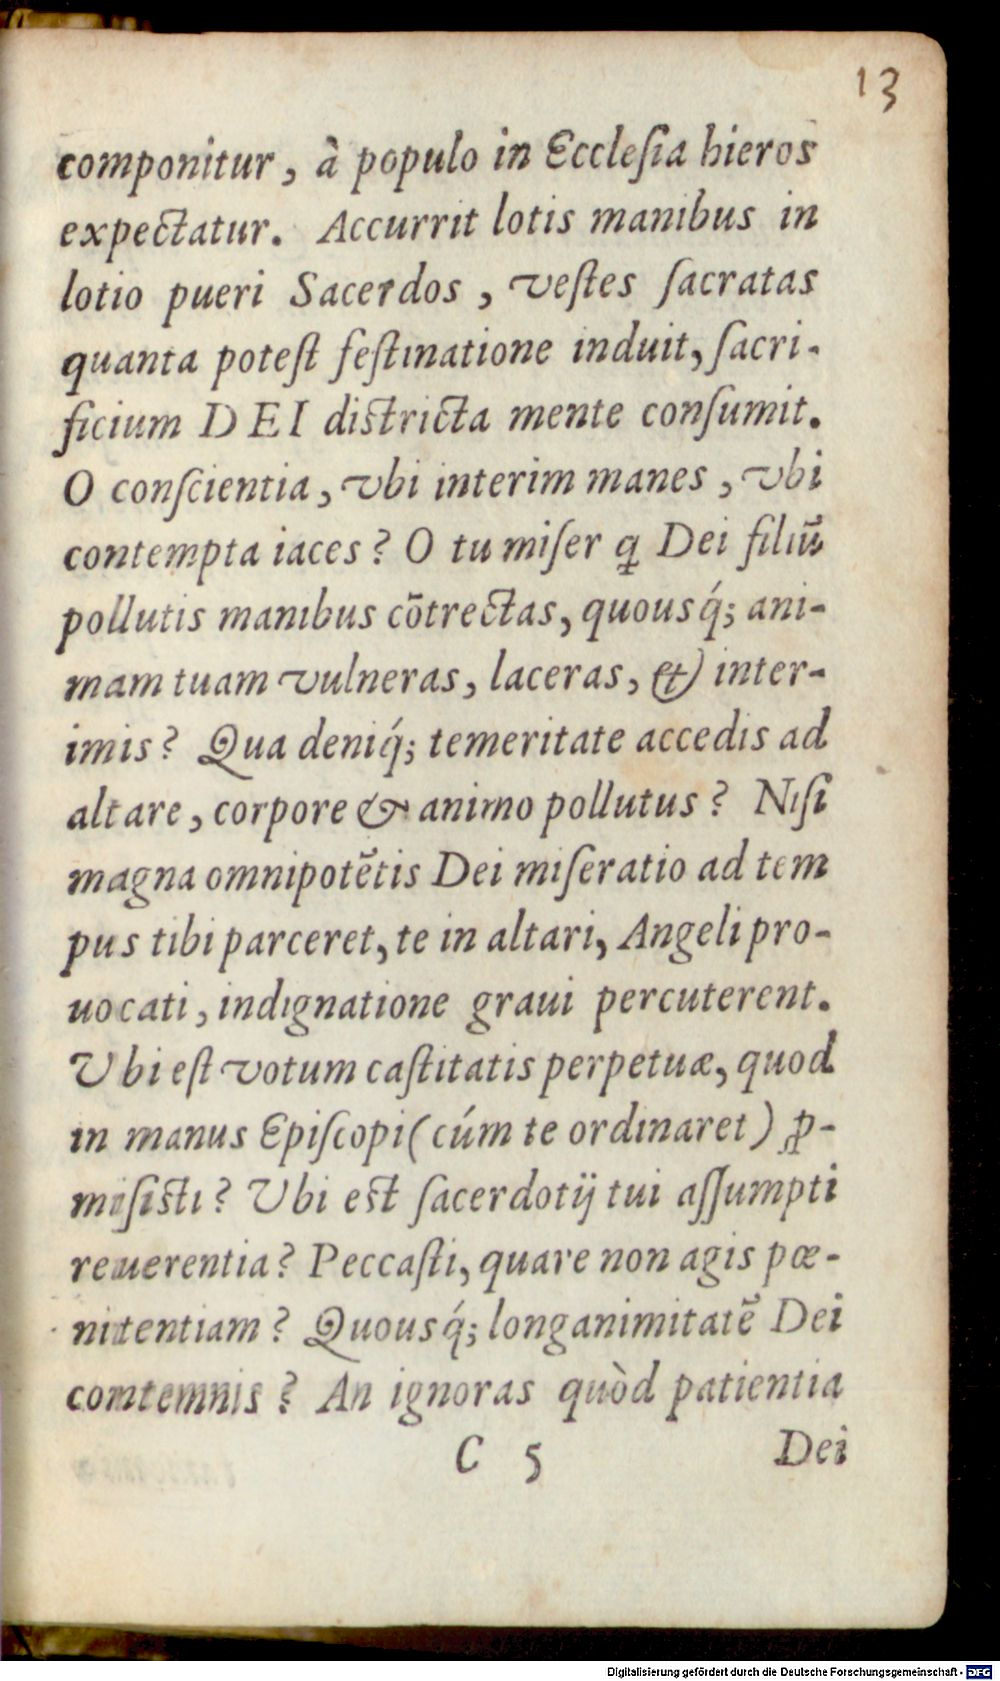 13
componitur, à populo in Ecclesia hieros
expectatur. Accurrit lotis manibus in
lotio pueri Sacerdos, vestes sacratas
quanta potest festinatione induit, sacri-
ficium DEI districta mente consumit.
O conscientia, vbi interim manes, vbi
contempta iaces? O tu miser q̃ Dei filiũ
pollutis manibus cõtrectas, quousq́; ani-
mam tuam vulneras, laceras, & inter-
imis? Qua deniq́; temeritate accedis ad
altare, corpore & animo pollutus? Nisi
magna omnipotẽtis Dei miseratio ad tem
pus tibi parceret, te in altari, Angeli pro-
uocati, indignatione graui percuterent.
Vbi est votum castitatis perpetuæ, quod
in manus Episcopi (cúm te ordinaret) ꝓ-
misisti? Vbi est sacerdotij tui assumpti
reuerentia? Peccasti, quare non agis pœ-
nitentiam? Quousq́; longanimitatẽ Dei
contemnis? An ignoras quòd patientia
C 5 Dei
Digitalisierung gefördert durch die Deutsche Forschungsgemeinschaft - DFG